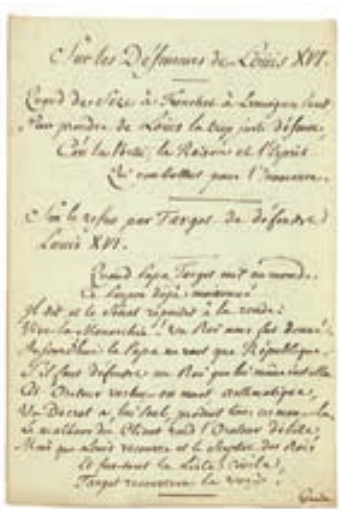 Sur les Défenseurs de Louis XVI.
Quand de Sèze à Tronchet à
Pour prendre de Louis la trop juste défense,
C'est la Vérité, la Raison et l'Esprit
Qui combattent pour l'innocence.
Sur le refus par Target de défendre
Louis XVI.
Quand Papa Target mit au monde
Le déjà
Il dit et le Sénat répondit à la ronde:
Vive la Monarchie! Un Roi nous fut donné.
Aujourd'hui le Papa ne veut que République.
S'il faut défendre un Roi que lui même
Cet Orateur est asthmatique,
Un Décret a lui seul produit tous
Le malheur du Client rend l'Orateur débile,
Mais que Louis recouvre et le Sceptre des Rois
Et surtout la Liste Civile,
Target recouvrera la voix.